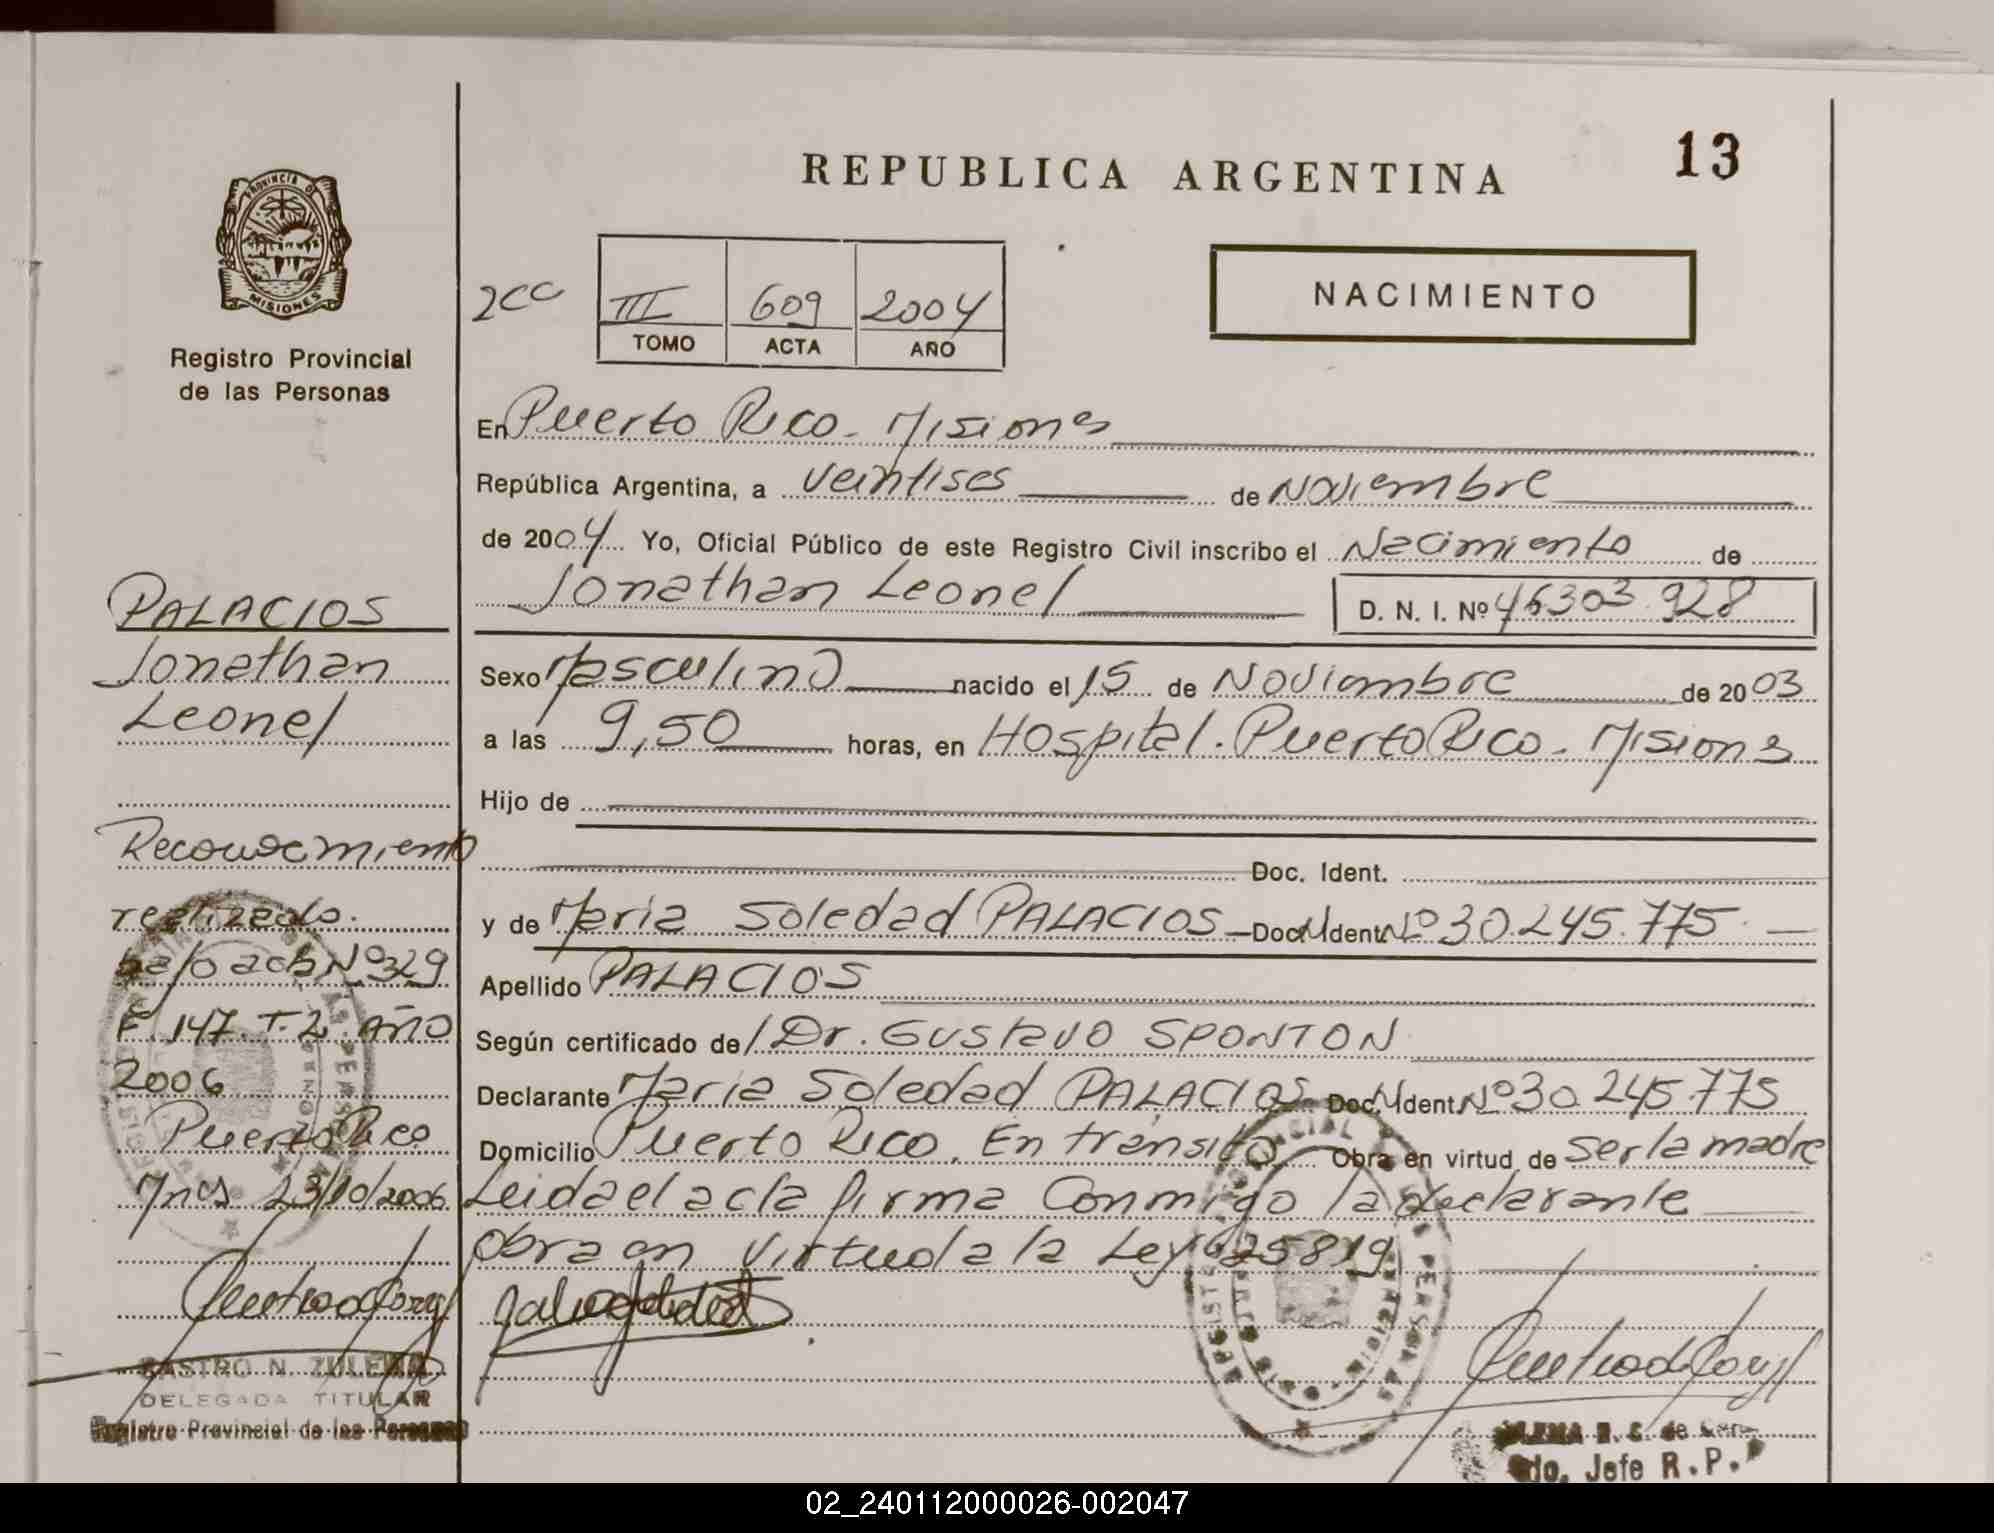 13
REPUBLICA ARGENTINA
PROVINCIA DE
MISIONES
Registro Provincial
de las Personas
2cc
III 609 2004
TOMO ACTA AÑO
NACIMIENTO
En Puerto Rico - Misiones
República Argentina, a veintiseis de Noviembre
de 2004 Yo, Oficial Público de este Registro Civil inscribo el Nacimiento de
Jonathan Leonel D. N. I. Nº 46303.928
Sexo Masculino nacido el 15 de Noviembre de 2003
a las 9,50 horas, en Hospital. Puerto Rico - Misiones
Hijo de
Doc. Ident.
y de Maria Soledad PALACIOS - Doc. Ident. Nº 30.245.775 -
Apellido PALACIOS
Según certificado del Dr. Gustavo SPONTON
Declarante Maria Soledad PALACIOS Doc. Ident. Nº 30.245.775
Domicilio Puerto Rico. En tránsito Obra en virtud de ser la madre
Leida el acta firma Conmigo la declarante
obra en virtud a la Ley 25819
PALACIOS
Jonathan
Leonel
Reconocimiento
realizado.
bajo acta Nº 329
F. 147. T. 2 Año
2006
Puerto Rico
Mnes 23/10/2006
CASTRO N. ZULEMA
DELEGADA TITULAR
Registro Provincial de las Personas
Jefe R.P.
02_240112000026-002047